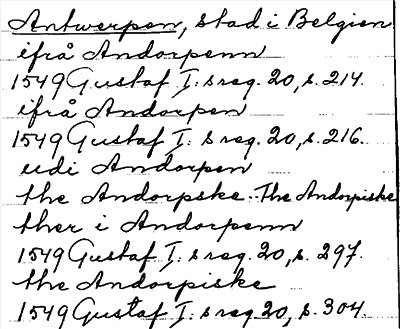 Antwerpen, stad i Belgien
ifrå Andorpenn
1549 Gustaf I:s reg. 20, s. 214.
ifrå Andorpen
1549 Gustaf I:s reg. 20, s. 216.
udi Andorpen
the Andorpske. The Andorpiske
ther i Andorpenn
1549 Gustaf I:s reg. 20, s. 297.
the Andorpiske
1549 Gustaf I:s reg. 20, s. 304.